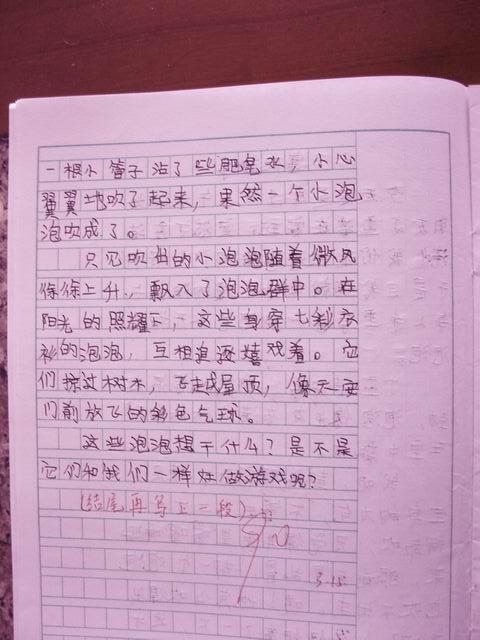 一根小管子沾了些肥皂水，小心
翼翼地吹了起来，果然一个小泡
泡吹成了。
只见吹出的小泡泡随着微风
徐徐上升，飘入了泡泡群中。在
阳光的照耀下，这些身穿七彩衣
衫的泡泡，互相追逐嬉戏着。它
们掠过树木，飞越屋顶，像天安
门前放飞的彩色气球。
这些泡泡想干什么？是不是
它们和我们一样在做游戏呢？
(结尾再写上一段)
90
3.15